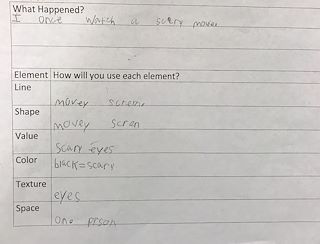 What Happened?
I once watch a scary movey
Element How will you use each element?
Line
movey screen
Shape
movey scren
Value
scary eyes
Color
black=scary
Texture
eyes
Space
one prson